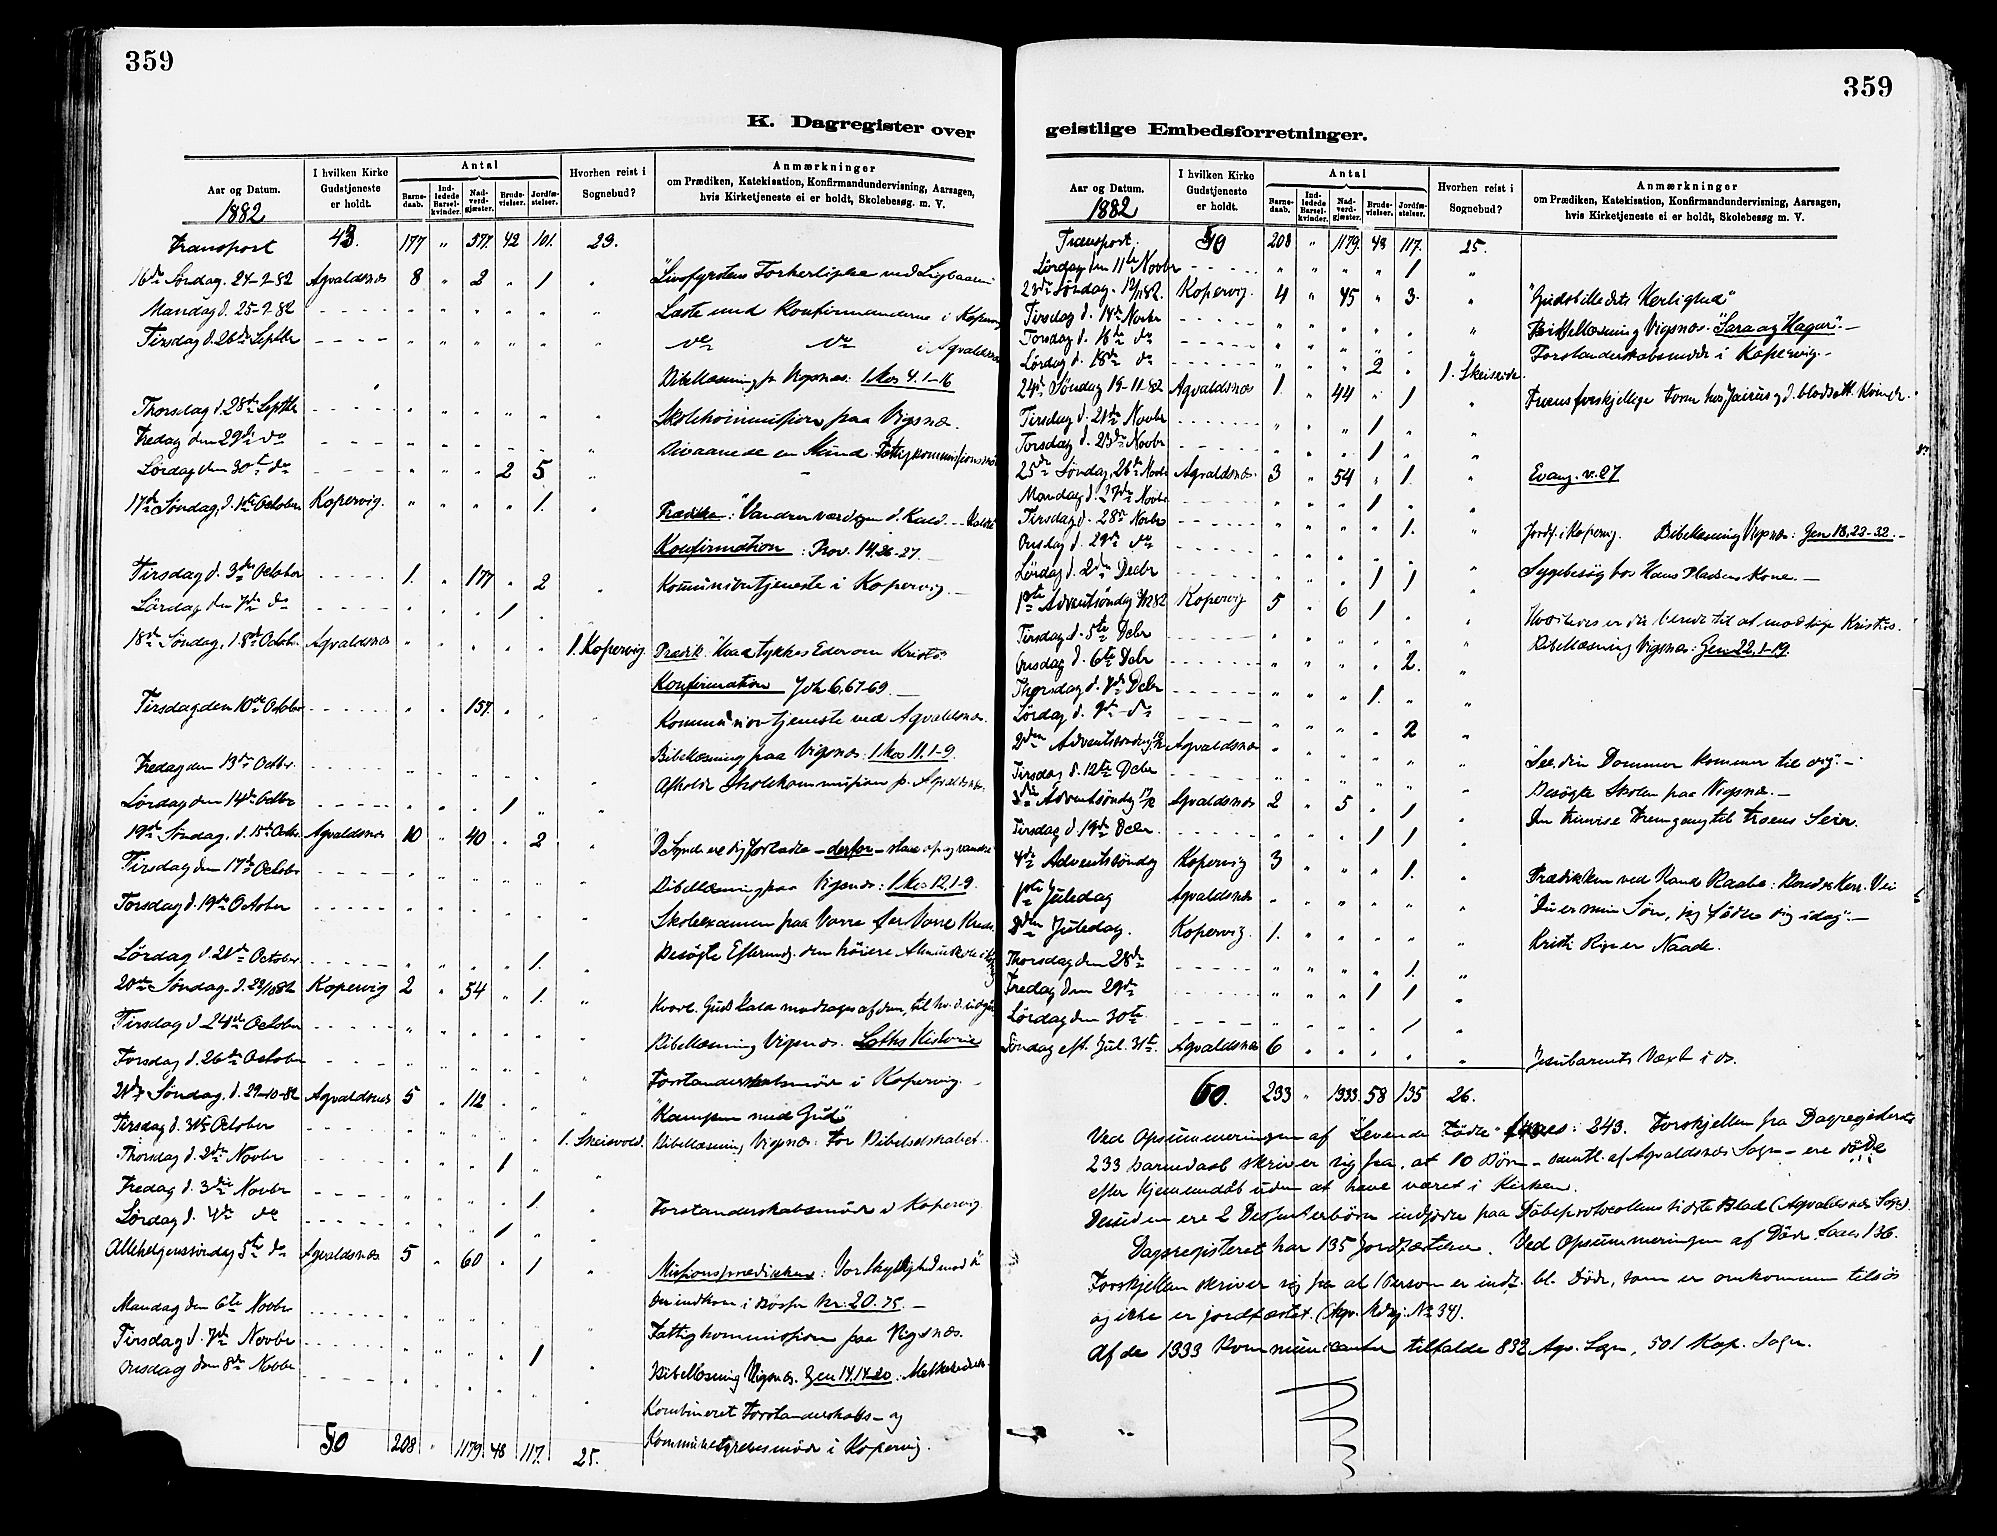 359
K. Dagregister over
Aar og Datum.
1882
I hvilken Kirke Gudstjeneste er holdt.
Antal
Barne-daab.
Ind-ledede Barsel-kvinder.
Nad-verd-gjæster.
Brude-vielser.
Jordfæ-stelser.
Hvorhen reist i Sognebud?
Anmærkninger
om Prædiken, Katekisation, Konfirmandundervisning, Aarsagen,
hvis Kirketjeneste ei er holdt, Skolebesøg m. V.
Transport 43 177 " 577 42 101. 23.
16de Søndag. 24-9-82 Agvaldsnæs 8 " 2 " 1 "
Mandag d. 25-9-82 Læste med Konfirmanderne i Kopervig
Tirsdag d. 26de Septbr do do i Agvaldsnæs
Bibellæsning p. Vigsnæs: 1 Mos 4.1-16
Thorsdag d. 28de Septbr Skolekommission paa Vigsnæs.
Fredag den 29de do
Lørdag den 30te do 2 5
17de Søndag, d. 1ste October Kopervig. 1.
Konfirmation : Prov. 14.26-27.
Tirsdag d. 3die October 1. " 177 " 2 Kommuniontjeneste i Kopervig.
Lørdag den 7de do 1
18de Søndag, d. 8de Octobr. Agvaldsnæs 1. Kopervig Prædik. "Hvad tykkes Eder om Kristo"
Konfirmation Joh 6,67-69.
Tirsdag den 10de October 157. Kommuniontjeneste ved Agvaldsnæs.
Bibellæsning paa Vigsnæs: 1 Mos 11.1-9.
Fredag den 13de Octbr. Afholdt Skolekommission p. Agvaldsnæs.
Lørdag den 14de Octbr 1
19de Søndag, d. 15de Octbr. Agvaldsnæs 10 " 40 " 2 "D. Synder ere dig forladte - derfor - staa op og vandre"
Tirsdag den 17de October Bibellæsning paa Vigsnæs: 1 Mos 12.1-9.
Torsdag d. 19de October Skoleexamen paa Vorre for Vorre Kreds
Lørdag d. 21de October 1.
20de Søndag. d. 22/10 82 Kopervig 2 " 54 " 1.
Tirsdag d 24de October Bibellæsning Vigsnæs. Loths Historie
Torsdag d. 26de October Forstanderskabsmøde i Kopervig.
21de Søndag, d. 29-10-82 Agvaldsnæs 5 " 112 "Kampen med Gud"
Tirsdag d. 31te October 1. Skeisvold. Bibellæsning Vigsnæs: for Bibelselskabet.
Thorsdag d. 2den Novbr 1
Fredag d. 3die Novbr 1. Forstanderskabsmøde i Kopervig
Lørdag d. 4de do 1
Allehelgenssøndag 5te do Agvaldsnæs 5 " 60 " 1 Missionsprædiken: Vor Skyldighed mod
Der indkom i Bøssen Kr: 20.75.
Mandag den 6te Novbr Fattigkommission paa Vigsnæs.
Tirsdag d. 7de Novbr 1 Bibellæsning Vigsnæs. Gen 14.14-20. Melkisedek
Onsdag den 8de Novbr Kombineret Forstanderskabs- og
Kommunestyrelsesmøde i Kopervig.
50 208 " 1179. 48 117. 25.
359
geistlige Embedsforretninger.
Aar og Datum.
1882
I hvilken Kirke Gudstjeneste er holdt.
Antal
Barne-daab.
Ind-ledede Barsel-kvinder.
Nad-verd-gjæster.
Brude-vielser.
Jordfæ-stelser.
Hvorhen reist i Sognebud?
Anmærkninger
om Prædiken, Katekisation, Konfirmandundervisning, Aarsagen,
hvis Kirketjeneste ei er holdt, Skolebesøg m. V.
Transport 50 208 " 1179. 48 117. 25.
Lørdag den 11te Novbr 1
23de Søndag. 12/11 82. Kopervig. 4 " 45 " 3. "Gudsbilledets Herlighed"
Tirsdag d. 14de Novbr Bibellæsning Vigsnæs. "Sara og Hagar".
Torsdag d. 16de do Forstanderskabsmøde i Kopervig.
Lørdag d. 18de do 2 1. Skeiseide
24de Søndag 19-11-82 Agvaldsnæs 1. " 44 " 1
Tirsdag d. 21de Novbr 1
Torsdag d. 23de Novbr 1
25de Søndag, 26de Novbr Agvaldsnæs. 3 " 54 " 1. Evang. v. 27
Mandag d. 27de Novbr 1
Tirsdag d. 28de Novbr 1. Jordf. i Kopervig. Bibellæsning Vigsnæs: Gen 18.23-32.
Onsdag d. 29de do Sygebesøg hos Hans Madsens Kone.
Lørdag d. 2den Decbr 1 1
1ste Adventsøndag 3/12 82 Kopervig 5 " 6 1
Tirsdag d. 5te Decbr Bibellæsning Vigsnæs: Gen 22.1-19.
Onsdag d. 6te Decbr 2.
Thorsdag d. 7de Decbr 1.
Lørdag d. 9de do 2
2den Adventssøndag 10/12 Agvaldsnæs "See, din Dommer kommer til dig".
Tirsdag d. 12te Decbr Besøgte Skolen paa Vigsnæs.
3die Adventsøndag 17/12 Agvaldsnæs 2 " 5 " 1 Den trinvise Fremgang til Troens Seier.
Tirsdag d. 19de Decbr. 1 1
4de Adventssøndag Kopervig 3 1. Prædikken ved Kand Raabe: Bered. Herr. Vei
1ste Juledag Agvaldsnæs "Du er min Søn, jeg fødte dig idag".
2den Juledag. Kopervig. 1. Kristi Rige er Naade.
Thorsdag den 28de 1.
Fredag den 29de 1 1
Lørdag den 30te. 1
Søndag eft. Jul. 31te. Agvaldsnæs 6 Jesubarnets Vext i os.
60. 233 " 1333 58 135 26.
Ved Opsummeringen af "Levende Fødte" faaes: 243. Forskjellen fra Dagregisterets
233 barnedaab skriver sig fra, at 10 Børn - samtl. af Agvaldsnæs Sogn - ere døde
efter Hjemmedåb uden at have været i Kirken.
Desuden ere 2 Dissenterbørn indførte paa Døbeprotocollens sidste Blad (Agvaldsnæs Sogn).
Dagsregisteret har 135 Jordfæstelser. Ved Opsummeringen af Døde faaes 136.
Forskjellen skriver sig fra at 1 Person er indf. bl. Døde, som er omkommen tilsøs
og ikke er jordfæstet. (Agv. Mdkj. No 34).
Af de 1333 Kommunicanter tilfalde 832 Agv. Sogn, 501 Kop. Sogn.